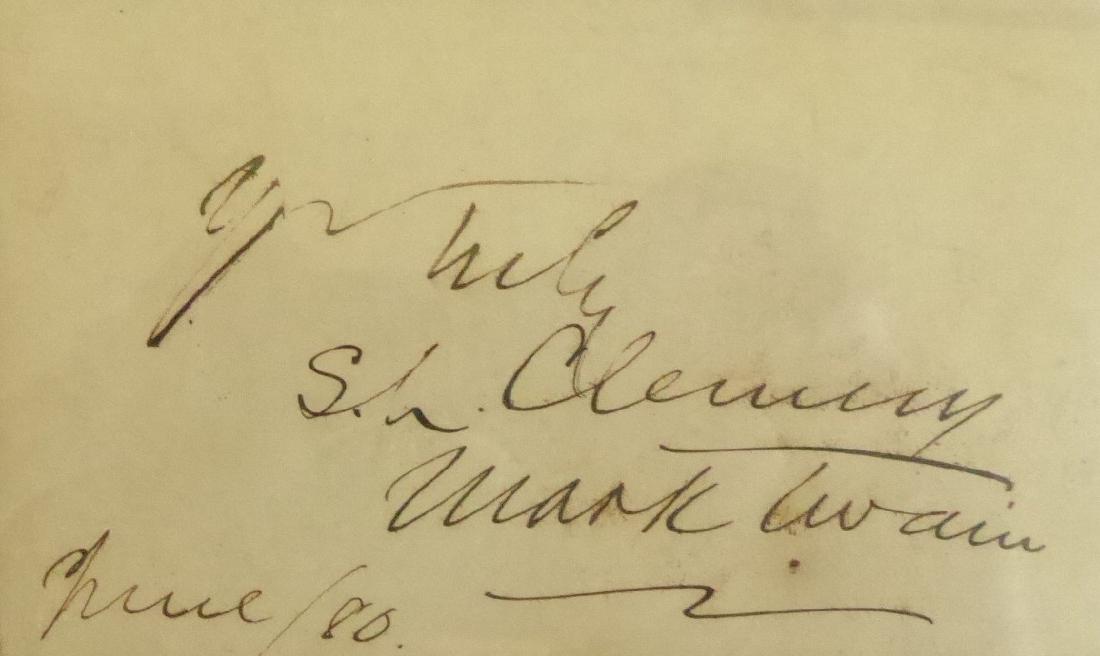 Yr truly
S. L. Clemens
Mark Twain
June/80.